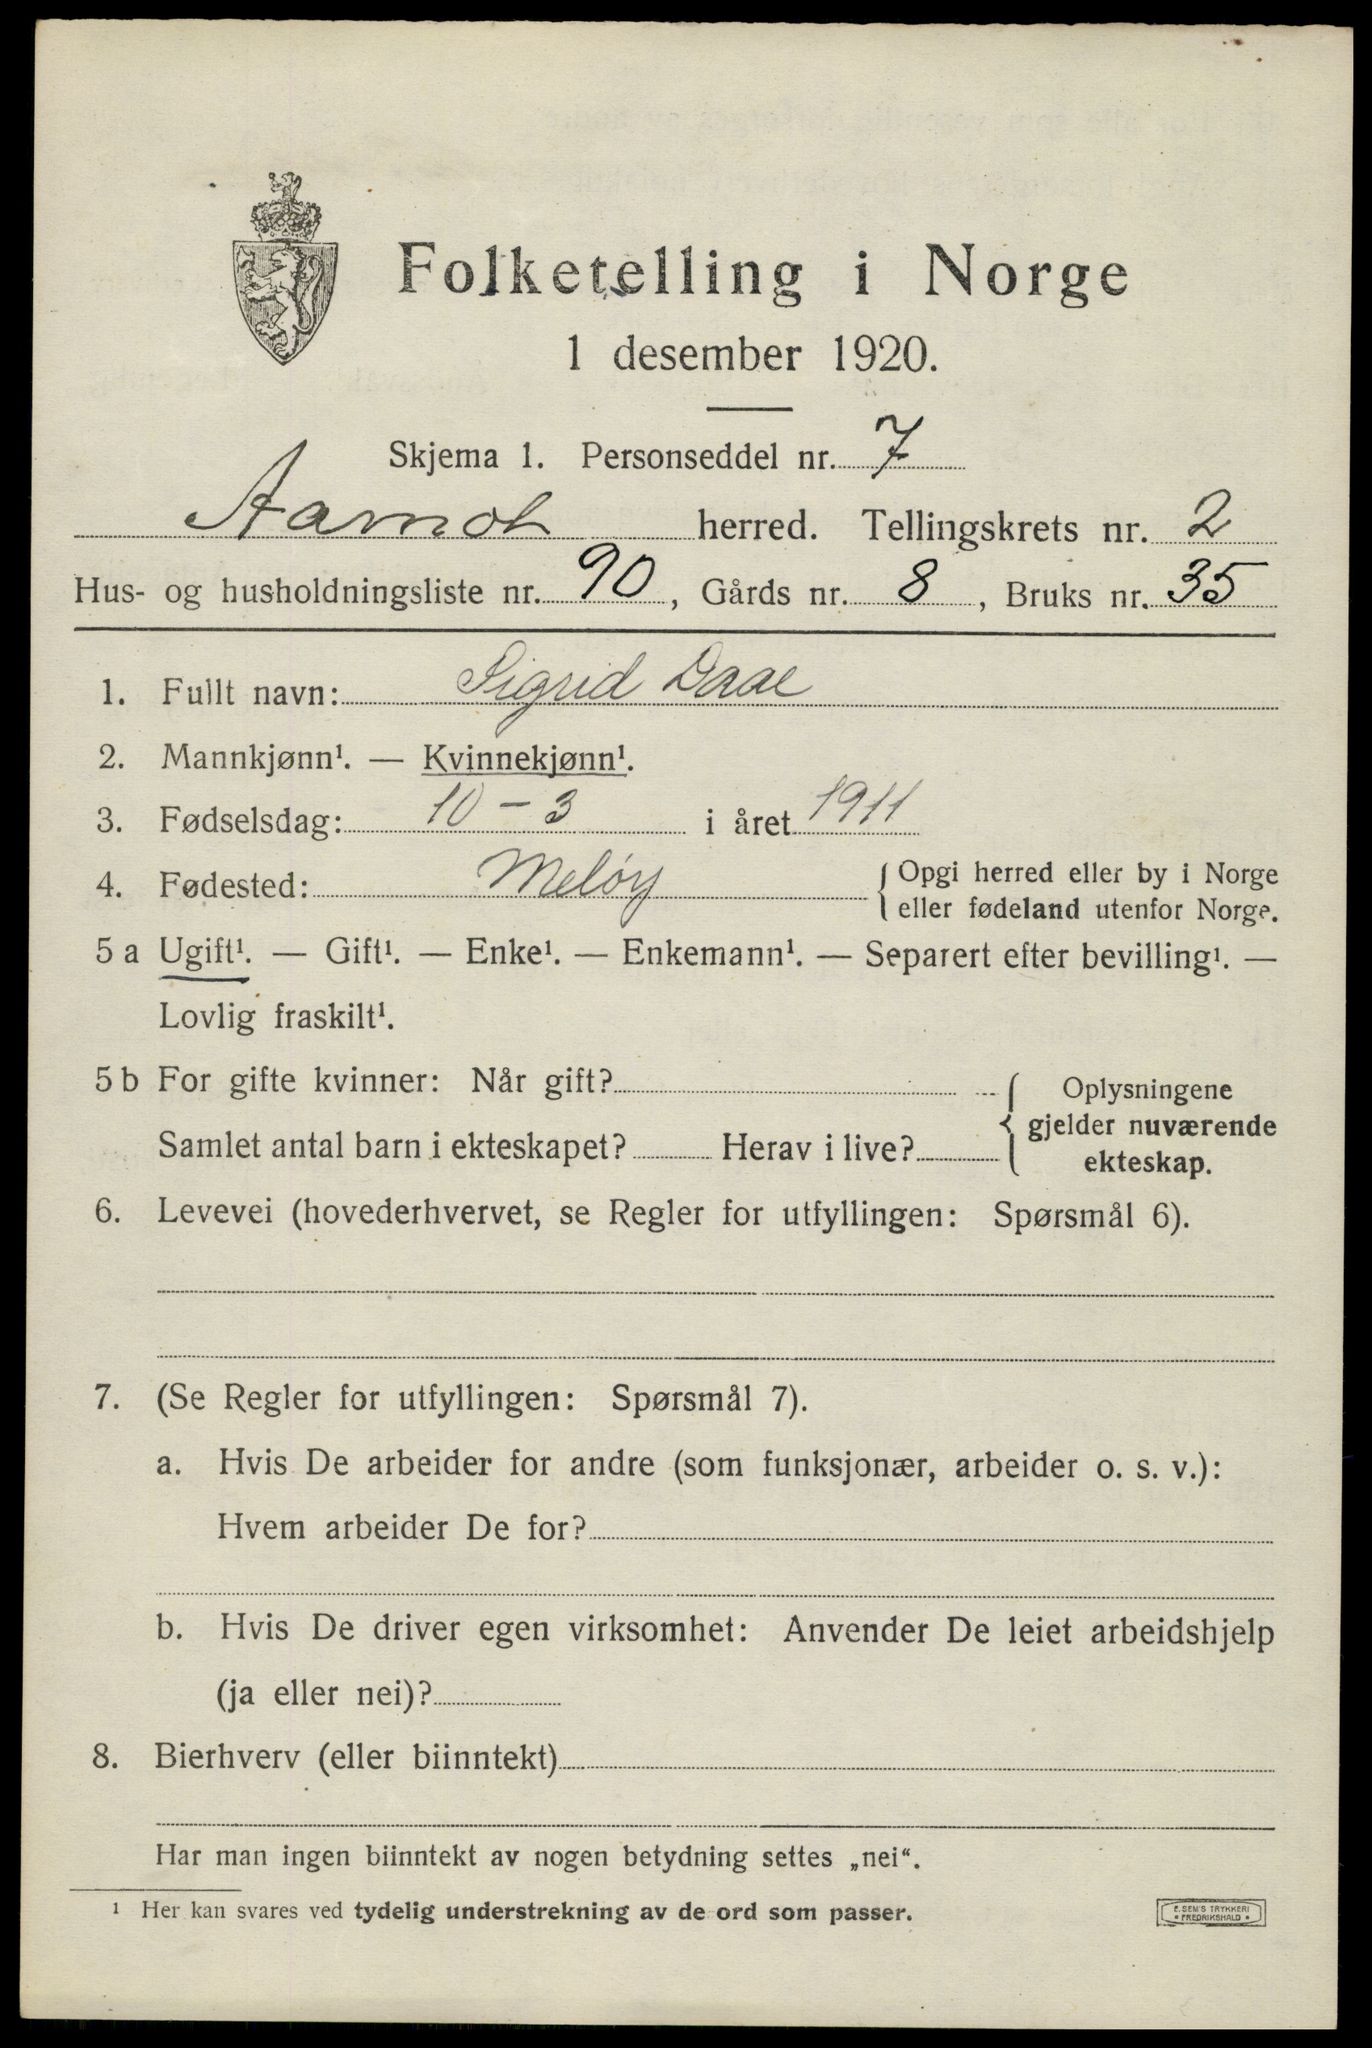 Folketelling i Norge
1 desember 1920.
Skjema 1. Personseddel nr. 7
Aamot herred. Tellingskrets nr. 2
Hus- og husholdningsliste nr. 90, Gårds nr. 8, Bruks nr. 35
1. Fullt navn: Sigrid Daae
2. Mannkjønn¹. — Kvinnekjønn¹.
3. Fødselsdag: 10 - 3 i året 1911
4. Fødested: Meløy { Opgi herred eller by i Norge
eller fødeland utenfor Norge.
5 a Ugift¹. — Gift¹. — Enke¹. — Enkemann¹. — Separert efter bevilling¹. —
Lovlig fraskilt¹.
5 b For gifte kvinner: Når gift? { Oplysningene
gjelder nuværende
Samlet antal barn i ekteskapet? Herav i live? ekteskap.
6. Levevei (hovederhvervet, se Regler for utfyllingen: Spørsmål 6).
7. (Se Regler for utfyllingen: Spørsmål 7).
a. Hvis De arbeider for andre (som funksjonær, arbeider o. s. v.):
Hvem arbeider De for?
b. Hvis De driver egen virksomhet: Anvender De leiet arbeidshjelp
(ja eller nei)?
8. Bierhverv (eller biinntekt)
Har man ingen biinntekt av nogen betydning settes „nei“.
¹ Her kan svares ved tydelig understrekning av de ord som passer.
E. SEM'S TRYKKERI
* FREDRIKSHALD *